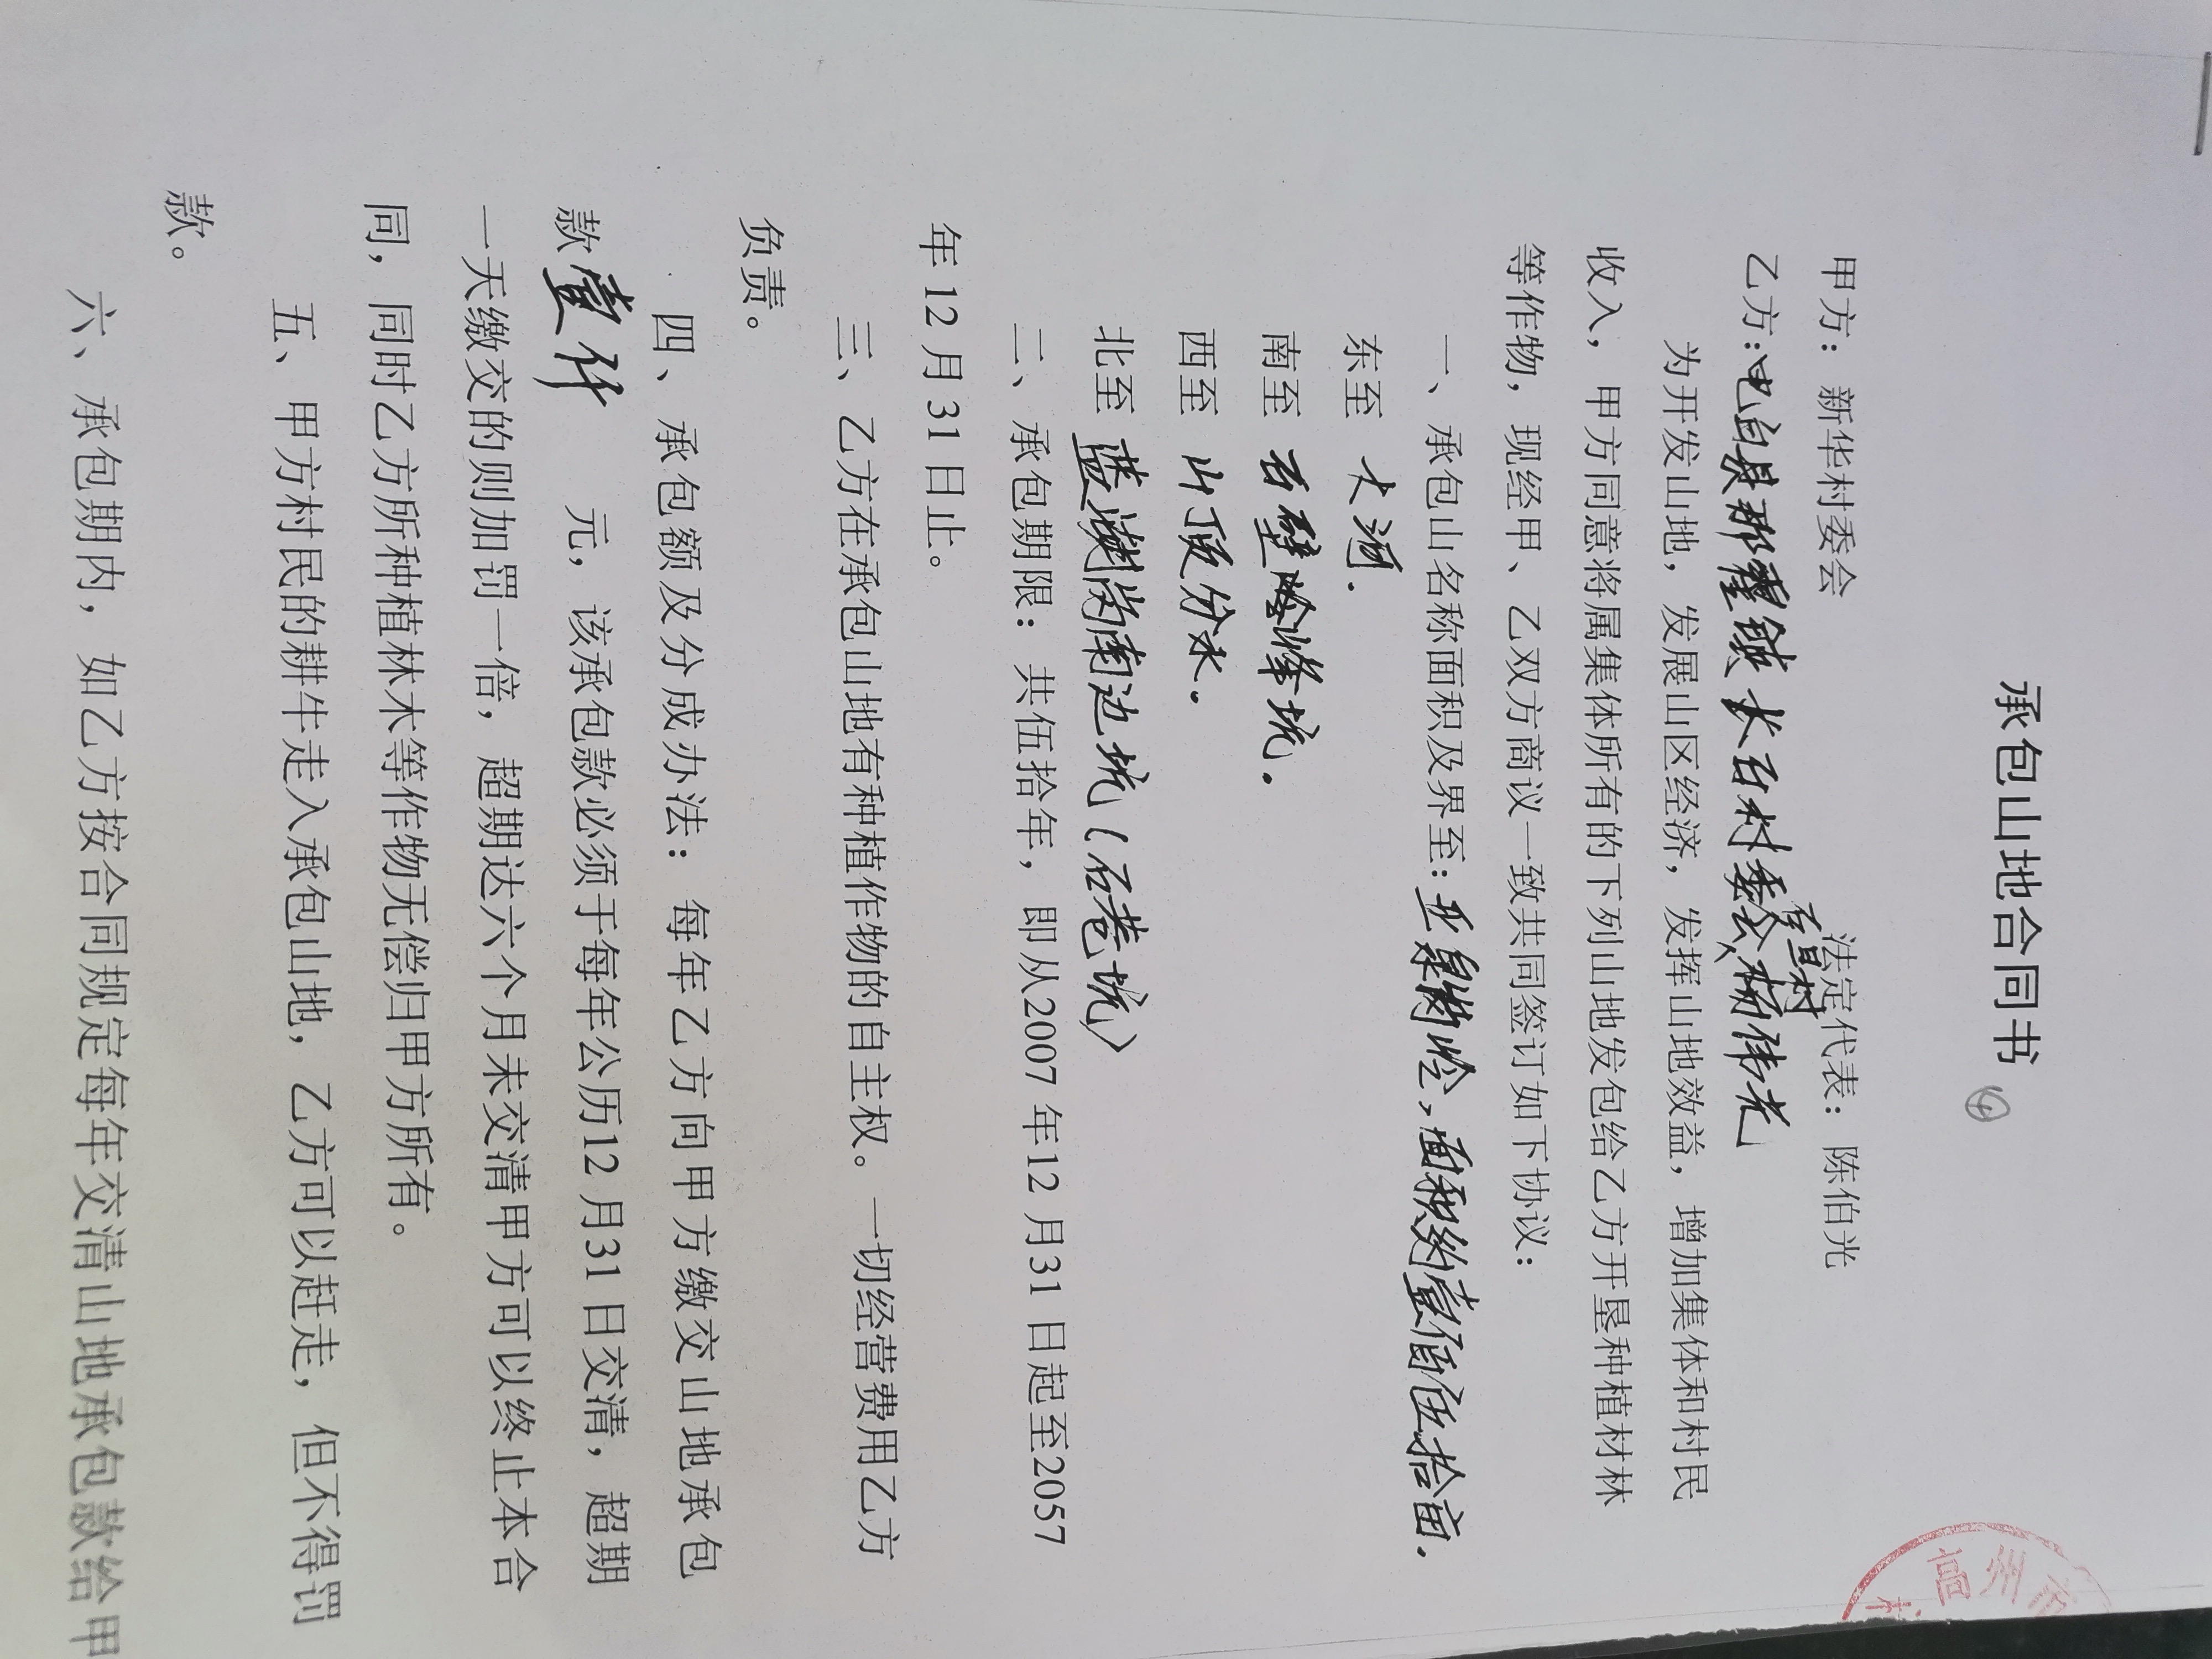 承包山地合同书 ④
甲方：新华村委会 法定代表：陈伯光
石豆村
乙方：电白县那霍镇大村村委会、杨伟光
为开发山地，发展山区经济，发挥山地效益，增加集体和村民
收入，甲方同意将属集体所有的下列山地发包给乙方开垦种植材林
等作物，现经甲、乙双方商议一致共同签订如下协议：
一、承包山名称面积及界至：面积约壹佰伍拾亩.
东至 大河.
南至 石壁峰坑.
西至 山顶分水.
北至 南边坑（石巷坑）
二、承包期限：共伍拾年，即从2007年12月31日起至2057
年12月31日止。
三、乙方在承包山地有种植作物的自主权。一切经营费用乙方
负责。
四、承包额及分成办法：每年乙方向甲方缴交山地承包
款壹仟 元，该承包款必须于每年公历12月31日交清，超期
一天缴交的则加罚一倍，超期达六个月未交清甲方可以终止本合
同，同时乙方所种植林木等作物无偿归甲方所有。
五、甲方村民的耕牛走入承包山地，乙方可以赶走，但不得罚
款。
六、承包期内，如乙方按合同规定每年交清山地承包款给甲
高州市